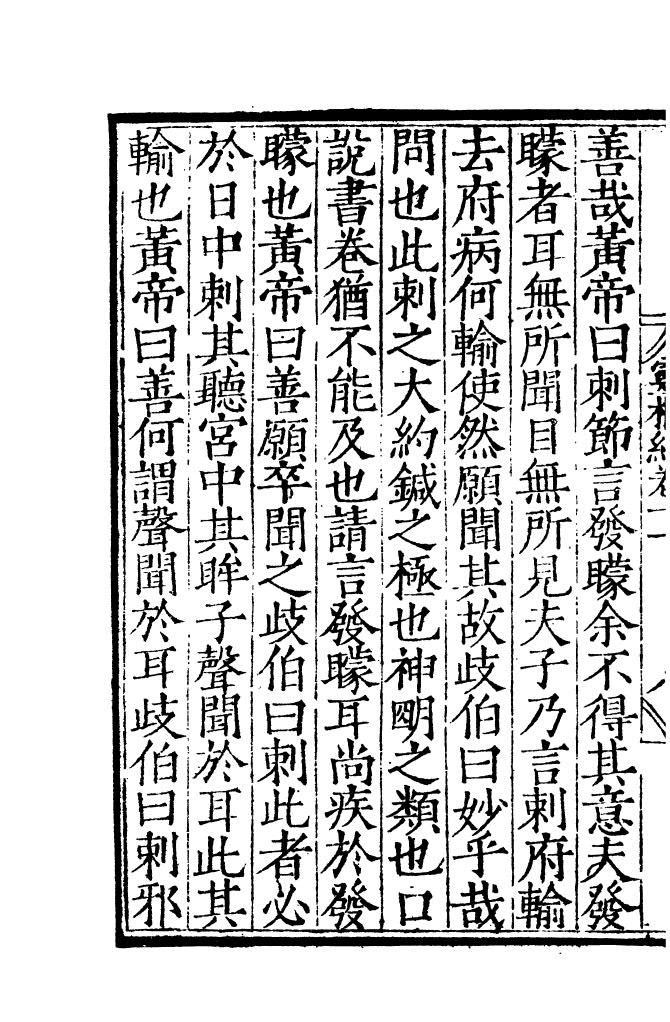 善哉黃帝曰刺節言發矇余不得其意夫發
矇者耳無所聞目無所見夫子乃言刺府輸
去府病何輸使然願聞其故歧伯曰妙乎哉
問也此刺之大約鍼之極也神明之類也口
說書卷猶不能及也請言發矇耳尚疾於發
矇也黃帝曰善願卒聞之歧伯曰刺此者必
於日中刺其聽宮中其眸子聲聞於耳此其
輸也黃帝曰善何謂聲聞於耳歧伯曰刺邪